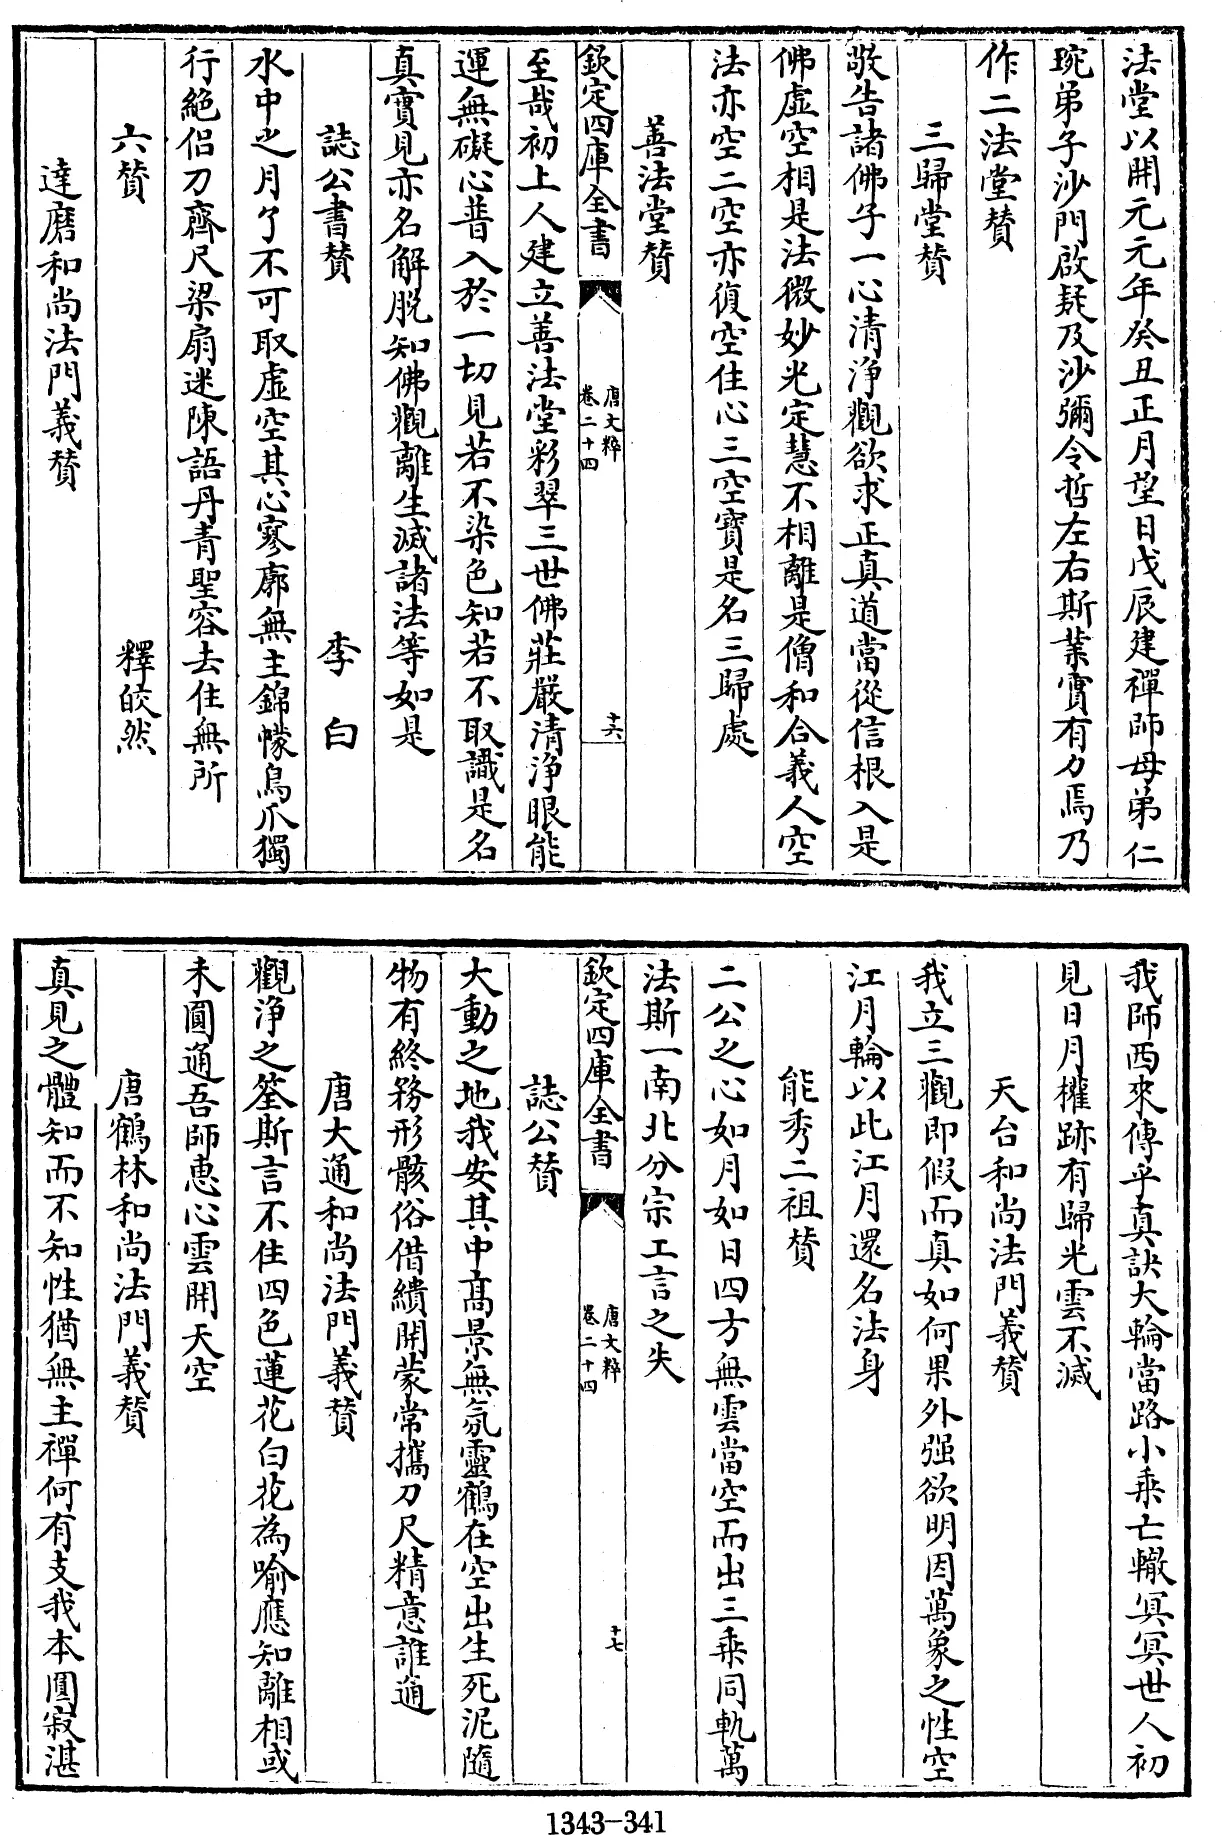 法堂以開元元年癸丑正月望日戊辰建禪師母弟仁
琬弟子沙門啟疑及沙彌令哲左右斯業實有力焉乃
作二法堂贊
三歸堂贊
敬告諸佛子一心清淨觀欲求正真道當從信根入是
佛虛空相是法微妙光定慧不相離是僧和合義人空
法亦空二空亦復空住心三空寶是名三歸處
善法堂贊
欽定四庫全書
唐文粹
卷二十四
十六
至哉初上人建立善法堂彩翠三世佛莊嚴清淨眼能
運無礙心普入於一切見若不染色知若不取識是名
真實見亦名解脫知佛觀離生滅諸法等如是
誌公書贊 李白
水中之月了不可取虛空其心寥廓無主錦幪鳥爪獨
行絕侣刀齊尺梁扇迷陳語丹青聖容去住無所
六贊 釋皎然
達磨和尚法門義贊
我師西來傳乎真訣大輪當路小乘亡轍冥冥世人初
見日月權跡有歸光雲不滅
天台和尚法門義贊
我立三觀即假而真如何果外强欲明因萬象之性空
江月輪以此江月還名法身
能秀二祖贊
二公之心如月如日四方無雲當空而出三乘同軌萬
法斯一南北分宗工言之失
欽定四庫全書
唐文粹
卷二十四
十七
誌公贊
大動之地我安其中高景無氛靈鶴在空出生死泥隨
物有終務形骸俗借繢開蒙常攜刀尺精意誰通
唐大通和尚法門義贊
觀淨之筌斯言不住四色蓮花白花為喻應知離相或
未圓通吾師惠心雲開天空
唐鶴林和尚法門義贊
真見之體知而不知性猶無主禪何有支我本圓寂湛
1343-341